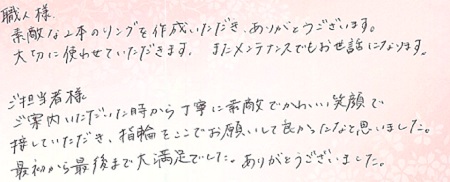 職人様
素敵な2本のリングを作成いただき、ありがとうございます。
大切に使わせていただきます。またメンテナンスでもお世話になります。
ご担当者様
ご案内いただいた時から丁寧に素敵でかわいい笑顔で
接していただき、指輪をここでお願いして良かったなと思いました。
最初から最後まで大満足でした。ありがとうございました。